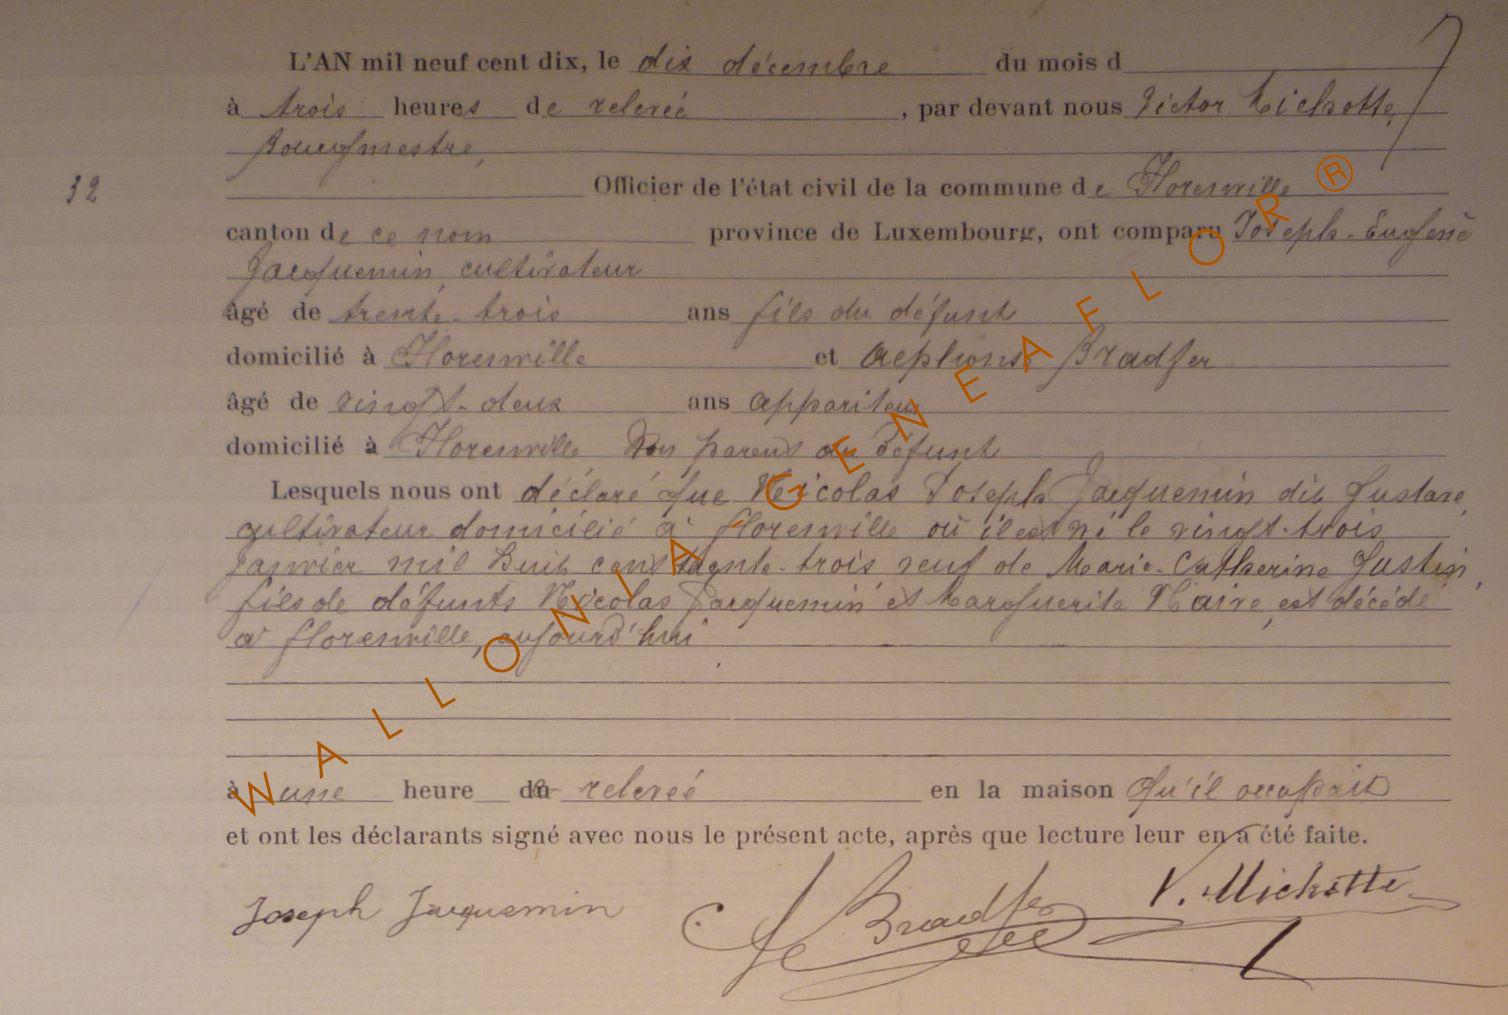 L'AN mil neuf cent dix, le dix décembre du mois d
à trois heures de relevée, par devant nous Victor Michotte,
Bourgmestre,
32 Officier de l'état civil de la commune de Florenville
canton de ce nom province de Luxembourg, ont comparu Joseph-Eugène
Jacquemin, cultivateur
âgé de trente-trois ans fils du défunt
domicilié à Florenville et Alphonse Bradfer
âgé de vingt-deux ans appariteur
domicilié à Florenville Non parent au défunt
Lesquels nous ont déclaré que Nicolas Joseph Jacquemin dit Gustave,
cultivateur domicilié à Florenville où il est né le vingt-trois
Janvier mil huit cent trente-trois veuf de Marie-Catherine Justin,
fils de défunts Nicolas Jacquemin et Marguerite Maire, est décédé
à Florenville, aujourd'hui
à une heure de relevée en la maison qu'il occupait
et ont les déclarants signé avec nous le présent acte, après que lecture leur en a été faite.
Joseph Jacquemin Bradfer V. Michotte
WALLONIA-GENEAFLOR®